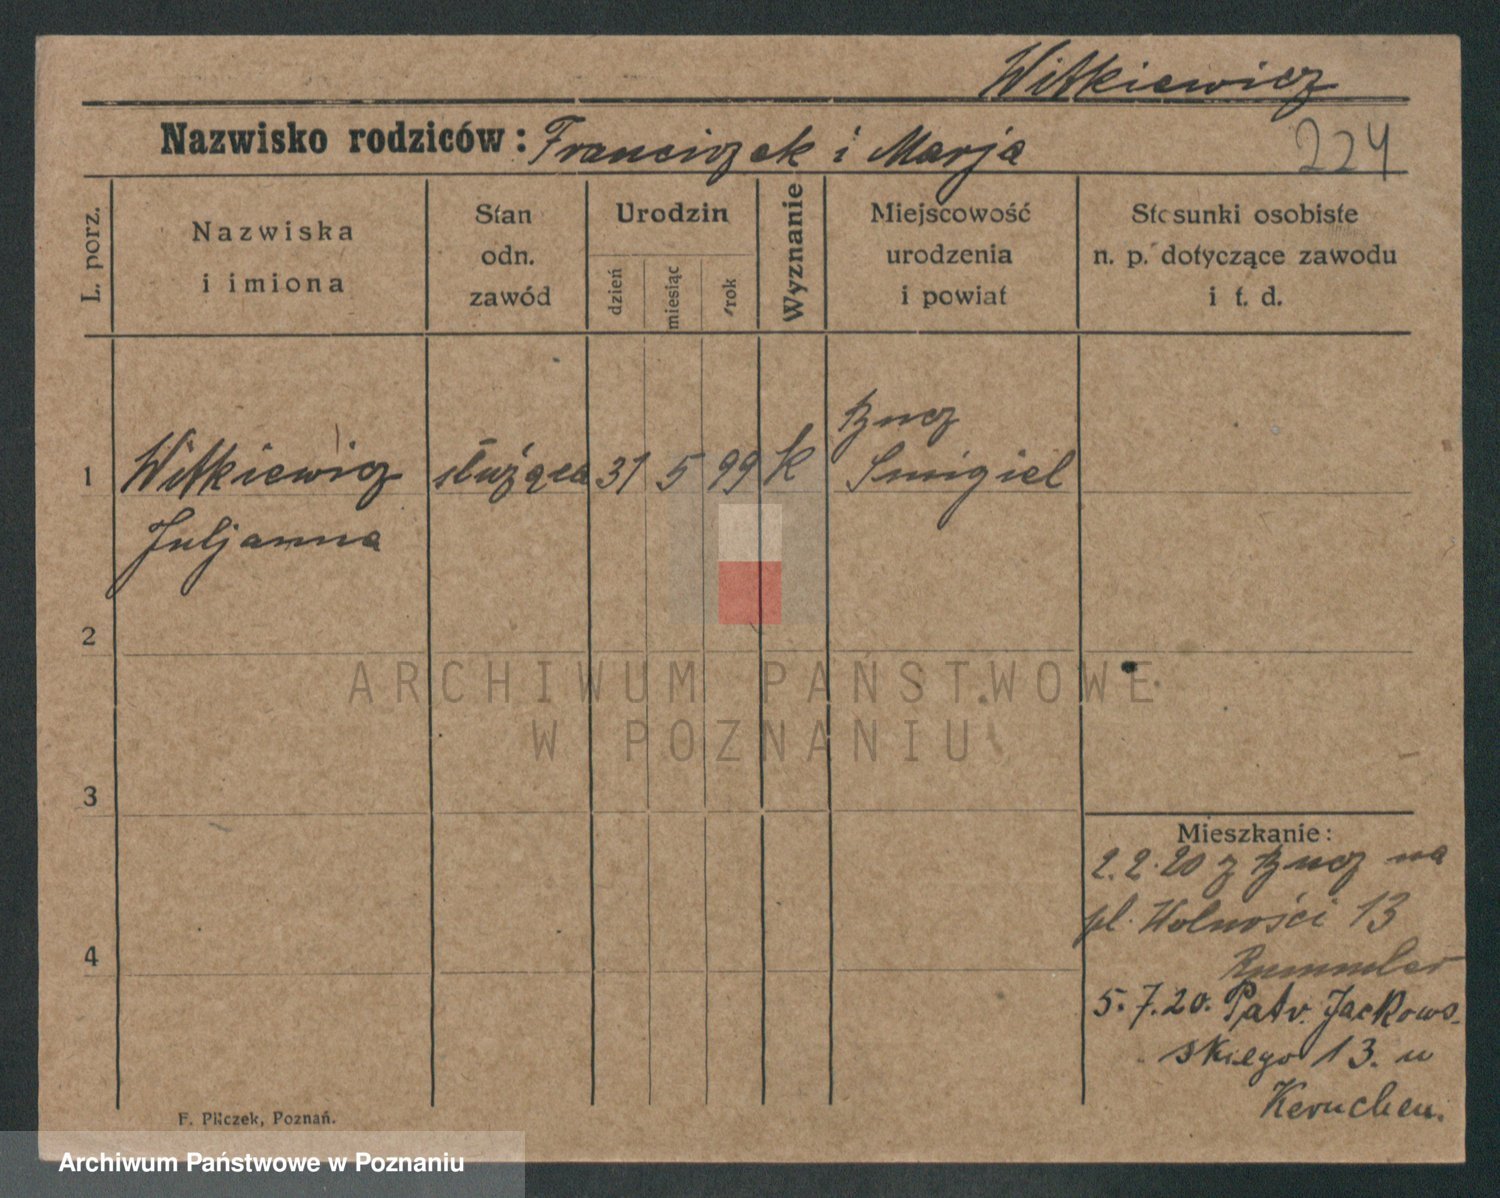 Witkiewicz
Nazwisko rodziców: Franciszek i Marja
224
L. porz.
Nazwiska
i imiona
Stan
odn.
zawód
Urodzin
dzień
miesiąc
rok
Wyznanie
Miejscowość
urodzenia
i powiat
Stosunki osobiste
n. p. dotyczące zawodu
i t. d.
1
Witkiewicz
Juljanna
służąca
31 5 99
k
Śmigiel
2
3
4
Mieszkanie:
2.2.20 z na
pl. Wolności 13
5.7.20. Patr. Jackows-
skiego 13. u
ARCHIWUM PAŃSTWOWE
W POZNANIU
F. Pilczek, Poznań.
Archiwum Państwowe w Poznaniu